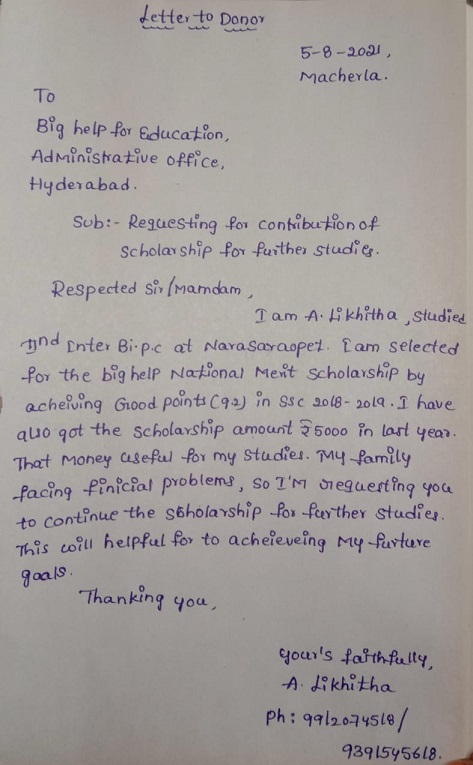 Letter to Donor
5-8-2021,
Macherla.
To
Big help for Education,
Administrative office,
Hyderabad.
Sub:- Requesting for contribution of
scholarship for further studies.
Respected Sir/Mamdam,
I am A. Likhitha, studied
IInd Inter Bi.p.c at Narasaraopet. I am selected
for the big help National Merit Scholarship by
acheiving Good points (9.2) in SSC 2018-2019. I have
also got the scholarship amount ₹5000 in last year.
That money useful for my studies. My family
facing finicial problems, so I'M requesting you
to continue the scholarship for further studies.
This will helpful for to acheieveing My furture
goals.
Thanking you,
your's faithfully,
A. Likhitha
Ph: 9912074518/
9391545618.